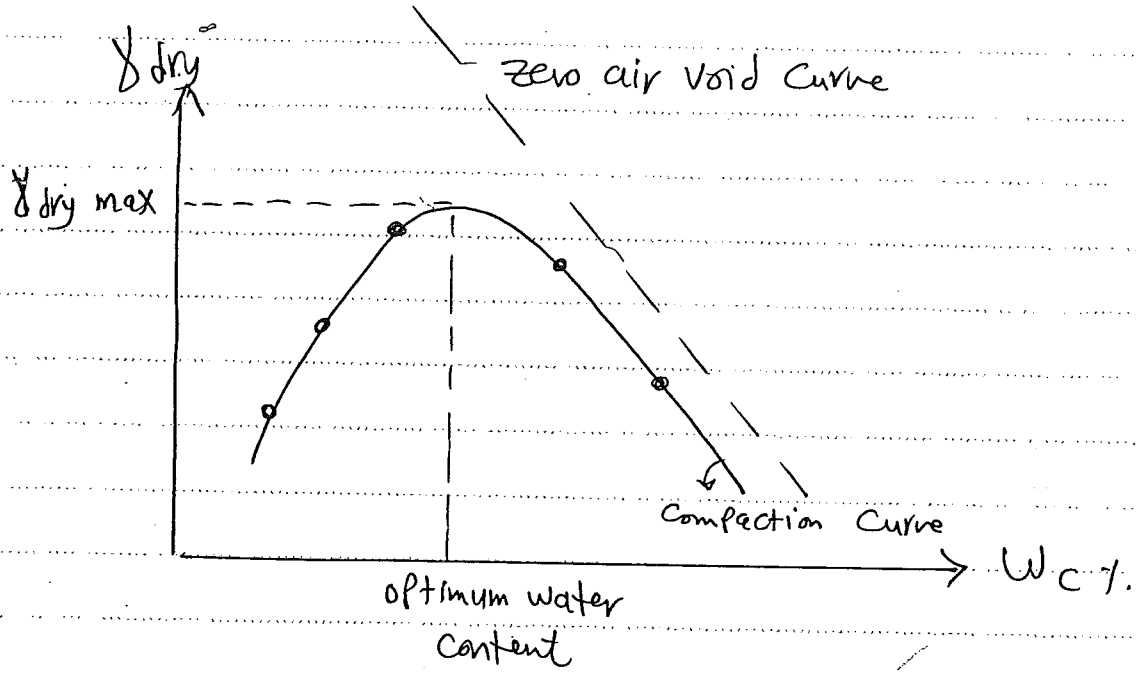 γ dry
zero air void Curve
γ dry max
Compaction Curve
Wc %.
optimum water
content